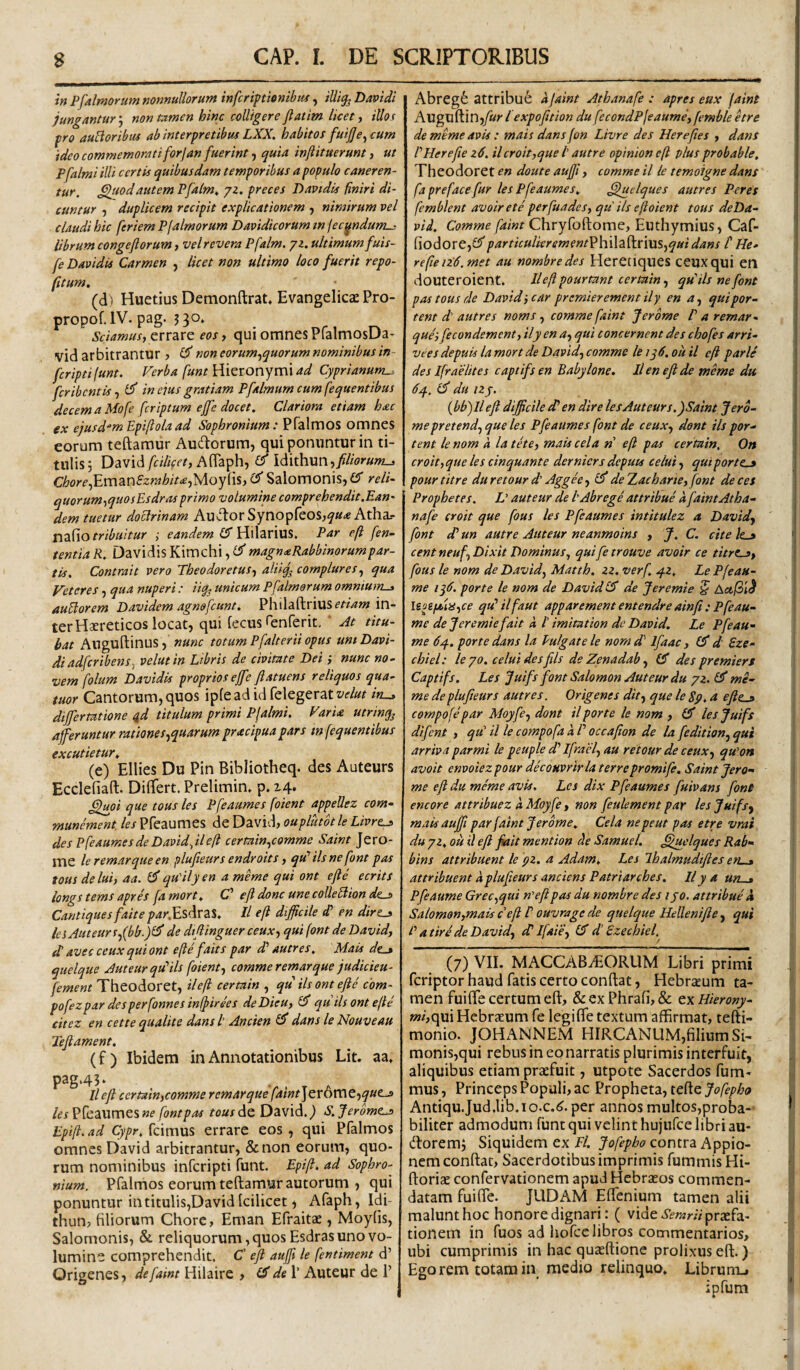 8 CAP. I. DE SCRIPTORIBUS
in Psalmorum nonnullorum inscriptionibus, illiq; Davidi
jungantur; non tamen hinc colligere statim licet, illos
pro auctoribus ab interpretibus LXX. habitos fuisse, cum
ideo commemorati forsan fuerint, quia instituerunt, ut
Psalmi illi certis quibusdam temporibus a populo caneren-
tur. Quod autem Psalm. 72. preces Davidis finiri di-
cuntur, duplicem recipit explicationem, nimirum vel
claudi hic seriem Psalmorum Davidicorum in secundum
librum congestorum, vel revera Psalm. 72. ultimum fuis-
se Davidis Carmen, licet non ultimo loco fuerit repo-
situm.
(d) Huetius Demonstrat. Evangelicæ Pro-
propos. IV. pag. 330.
Sciamus, errare eos, qui omnes PsalmosDa-
vid arbitrantur, & non eorum, quorum nominibus in-
scripti sunt. Verba sunt Hieronymi ad Cyprianum
scribentis, & in ejus gratiam Psalmum cum sequentibus
decem a Mose scriptum esse docet. Clariora etiam hæc
ex ejusdem Epistola ad Sophronium: Psalmos omnes
eorum testamur Auctorum, qui ponuntur in ti-
tulis; David scilicet, Assaph, & Idithun, filiorum
Chore, Eman Ezrahitæ, Moysis, & Salomonis, & reli-
quorum, quos Esdras primo volumine comprehendit. Ean-
dem tuetur doctrinam Auctor Synopseos, quæ Atha-
nasio tribuitur; eandem & Hilarius. Par est sen-
tentia R. Davidis Kimchi, & magnæ Rabbinorum par-
tis. Contrait vero Theodoretus, aliiq; complures, qua
Veteres, qua nuperi: iiq; unicum Psalmorum omnium
auctorem Davidem agnoscunt. Philastrius etiam in-
ter Hæreticos locat, qui secus senserit. At titu-
bat Augustinus, nunc totum Psalterii opus uni Davi-
di adscribens, velut in Libris de civitate Dei; nunc no-
vem solum Davidis proprios esse statuens reliquos qua-
tuor Cantorum, quos ipse ad id selegerat velut in
dissertatione ad titulum primi Psalmi. Variæ utrinq;
asseruntur rationes, quarum præcipua pars in sequentibus
excutietur.
(e) Ellies Du Pin Bibliotheq. des Auteurs
Ecclesiast. Dissert. Prelimin. p. 24.
Quoi que tous les Pseaumes soient appellez com-
munément les Pseaumes de David, ou plûtôt le Livre
des Pseaumes de David, il est certain, comme Saint Jero-
me le remarque en plusieurs endroits, qu' ils ne sont pas
tous de lui, aa. & qu' il y en a même qui ont esté ecrits
longs tems aprés sa mort. C' est donc une collection de
Cantiques faite par Esdras. Il est difficile d' en dire
les Auteurs, (bb.) & de distinguer ceux, qui sont de David,
d' avec ceux qui ont esté faits par d' autres. Mais de
quelque Auteur qu' ils soient, comme remarque judicieu-
sement Theodoret, il est certain, qu' ils ont esté com-
posez par des personnes inspirées de Dieu, & qu' ils ont esté
citez en cette qualite dans l' Ancien & dans le Nouveau
Testament.
(f) Ibidem in Annotationibus Lit. aa.
pag. 43.
Il est certain, comme remarque saint Jerôme, que
les Pseaumes ne sont pas tous de David.) S. Jerôme
Epist. ad Cypr. scimus errare eos, qui Psalmos
omnes David arbitrantur, & non eorum, quo-
rum nominibus inscripti sunt. Epist. ad Sophro-
nium. Psalmos eorum testamur autorum, qui
ponuntur in titulis, David scilicet, Asaph, Idi-
thun, filiorum Chore, Eman Efraitæ, Moysis,
Salomonis, & reliquorum, quos Esdras uno vo-
lumine comprehendit. C' est aussi le sentiment d'
Origenes, de saint Hilaire, & de l' Auteur de l'
Abregé attribué à saint Athanase: apres eux saint
Augustin, sur l' exposition du second Pseaume, semble être
de même avis: mais dans son Livre des Heresies, dans
l' Heresie 26. il croit, que l' autre opinion est plus probable.
Theodoret en doute aussi, comme il le temoigne dans
sa preface sur les Pseaumes. Quelques autres Peres
semblent avoir eté persuades, qu' ils estoient tous de Da-
vid. Comme saint Chrysostome, Euthymius, Cas-
siodore, & particulierement Philastrius, qui dans l' He-
resie 126. met au nombre des Heretiques ceux qui en
douteroient. Il est pourtant certain, qu' ils ne sont
pas tous de David; car premierement il y en a, qui por-
tent d' autres noms, comme saint Jerôme l' a remar-
qué; secondement, il y en a, qui concernent des choses arri-
vées depuis la mort de David, comme le 136. où il est parlé
des Israëlites captifs en Babylone. Il en est de même du
64. & du 125.
(bb) Il est difficile d' en dire les Auteurs.) Saint Jerô-
me pretend, que les Pseaumes sont de ceux, dont ils por-
tent le nom à la tête, mais cela n' est pas certain. On
croit, que les cinquante derniers depuis celui, qui porte
pour titre du retour d' Aggée, & de Zacharie, sont de ces
Prophetes. L' auteur de l' Abregé attribué à saint Atha-
nase croit que sous les Pseaumes intitulez a David,
sont d' un autre Auteur neanmoins, J. C. cite le
cent neuf, Dixit Dominus, qui se trouve avoir ce titre,
sous le nom de David, Matth. 22. vers. 42. Le Pseau-
me 136. porte le nom de David & de Jeremie ϛ Δαβὶδ
Ἱερεμίȣ, ce qu' il faut apparement entendre ainsi: Pseau-
me de Jeremie fait à l' imitation de David. Le Pseau-
me 64. porte dans la Vulgate le nom d' Isaac, & d' Eze-
chiel: le 70. celui des fils de Zenadab, & des premiers
Captifs. Les Juifs font Salomon Auteur du 72. & mê-
me de plusieurs autres. Origenes dit, que le 89. a esté
composé par Moyse, dont il porte le nom, & les Juifs
disent, qu' il le composa à l' occasion de la sedition, qui
arriva parmi le peuple d' Israël, au retour de ceux, qu'on
avoit envoiez pour découvrir la terre promise. Saint Jero-
me est du même avis. Les dix Pseaumes suivans sont
encore attribuez à Moyse, non seulement par les Juifs,
mais aussi par saint Jerôme. Cela ne peut pas etre vrai
du 72. où il est fait mention de Samuel. Quelques Rab-
bins attribuent le 92. a Adam. Les Thalmudistes en
attribuent à plusieurs anciens Patriarches. Il y a un
Pseaume Grec, qui n' est pas du nombre des 150. attribué à
Salomon, mais c' est l' ouvrage de quelque Hellenisle, qui
l' a tiré de David, d' Isaïe, & d' Ezechiel.
(7) VII. MACCABÆORUM Libri primi
scriptor haud satis certo constat, Hebræum ta-
men fuisse certum est, & ex Phrasi, & ex Hierony-
mi, qui Hebræum se legisse textum affirmat, testi-
monio. JOHANNEM HIRCANUM, filium Si-
monis, qui rebus in eo narratis plurimis interfuit,
aliquibus etiam præfuit, utpote Sacerdos sum-
mus, Princeps Populi, ac Propheta, teste Josepho
Antiqu. Jud. lib. 10. c. 6. per annos multos, proba-
biliter admodum sunt qui velint hujusce libri au-
ctorem; Siquidem ex Fl. Josepho contra Appio-
nem constat, Sacerdotibus imprimis summis Hi-
storiæ conservationem apud Hebræos commen-
datam fuisse. JUDAM Essenium tamen alii
malunt hoc honore dignari: ( vide Serarii præfa-
tionem in suos ad hosce libros commentarios,
ubi cumprimis in hac quæstione prolixus est.)
Ego rem totam in medio relinquo. Librum
ipsum